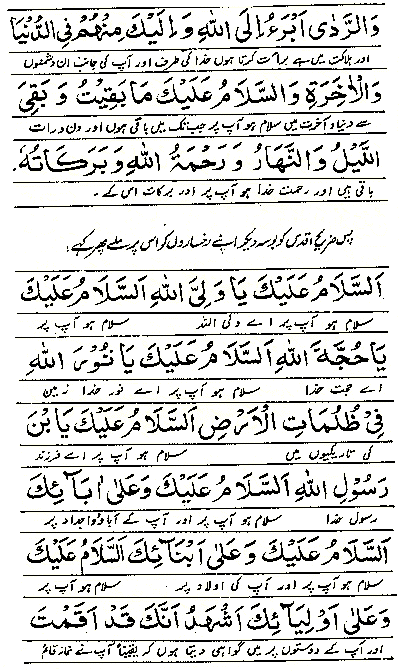 وَالرَّدٰى اَبْرَءُ اِلَى اللهِ وَ اِلَيْكَ مِنْهُمْ فِى الدُّنْيَا
اور ہلاکت میں ہے برائت کرتا ہوں خدا کی طرف اور آپ کی جانب ان دشمنوں
وَالْاٰخِرَةِ وَالسَّلَامُ عَلَيْكَ مَا بَقِيْتُ وَ بَقِىَ
سے دنیا و آخرت میں سلام ہو آپ پر جب تک میں باقی ہوں اور دن و رات
اللَّيْلُ وَالنَّهَارُ وَ رَحْمَةُ اللهِ وَ بَرَكَاتُهٗ.
باقی ہیں اور رحمت خدا ہو آپ پر اور برکات اس کے۔
پس ضریح اقدس کو بوسہ دیکر اپنے رخساروں کو اس پر ملے پھر کہے:
اَلسَّلَامُ عَلَيْكَ يَا وَلِىَّ اللهِ اَلسَّلَامُ عَلَيْكَ
سلام ہو آپ پر اے ولی اللہ سلام ہو آپ پر
يَا حُجَّةَ اللهِ اَلسَّلَامُ عَلَيْكَ يَا نُوْرَ اللهِ
اے حجت خدا سلام ہو آپ پر اے نور خدا زمین
فِىْ ظُلُمَاتِ الْاَرْضِ اَلسَّلَامُ عَلَيْكَ يَا بْنَ
کی تاریکیوں میں سلام ہو آپ پر اے فرزند
رَسُوْلِ اللهِ اَلسَّلَامُ عَلَيْكَ وَ عَلٰى اٰبَآئِكَ
رسول خدا سلام ہو آپ پر اور آپ کے آباؤ اجداد پر
اَلسَّلَامُ عَلَيْكَ وَ عَلٰى اَبْنَآئِكَ اَلسَّلَامُ عَلَيْكَ
سلام ہو آپ پر اور آپ کی اولاد پر سلام ہو آپ پر
وَ عَلٰى اَوْلِيَآئِكَ اَشْهَدُ اَنَّكَ قَدْ اَقَمْتَ
اور آپ کے دوستوں پر میں گواہی دیتا ہوں کہ یقیناً آپ نے نماز قائم